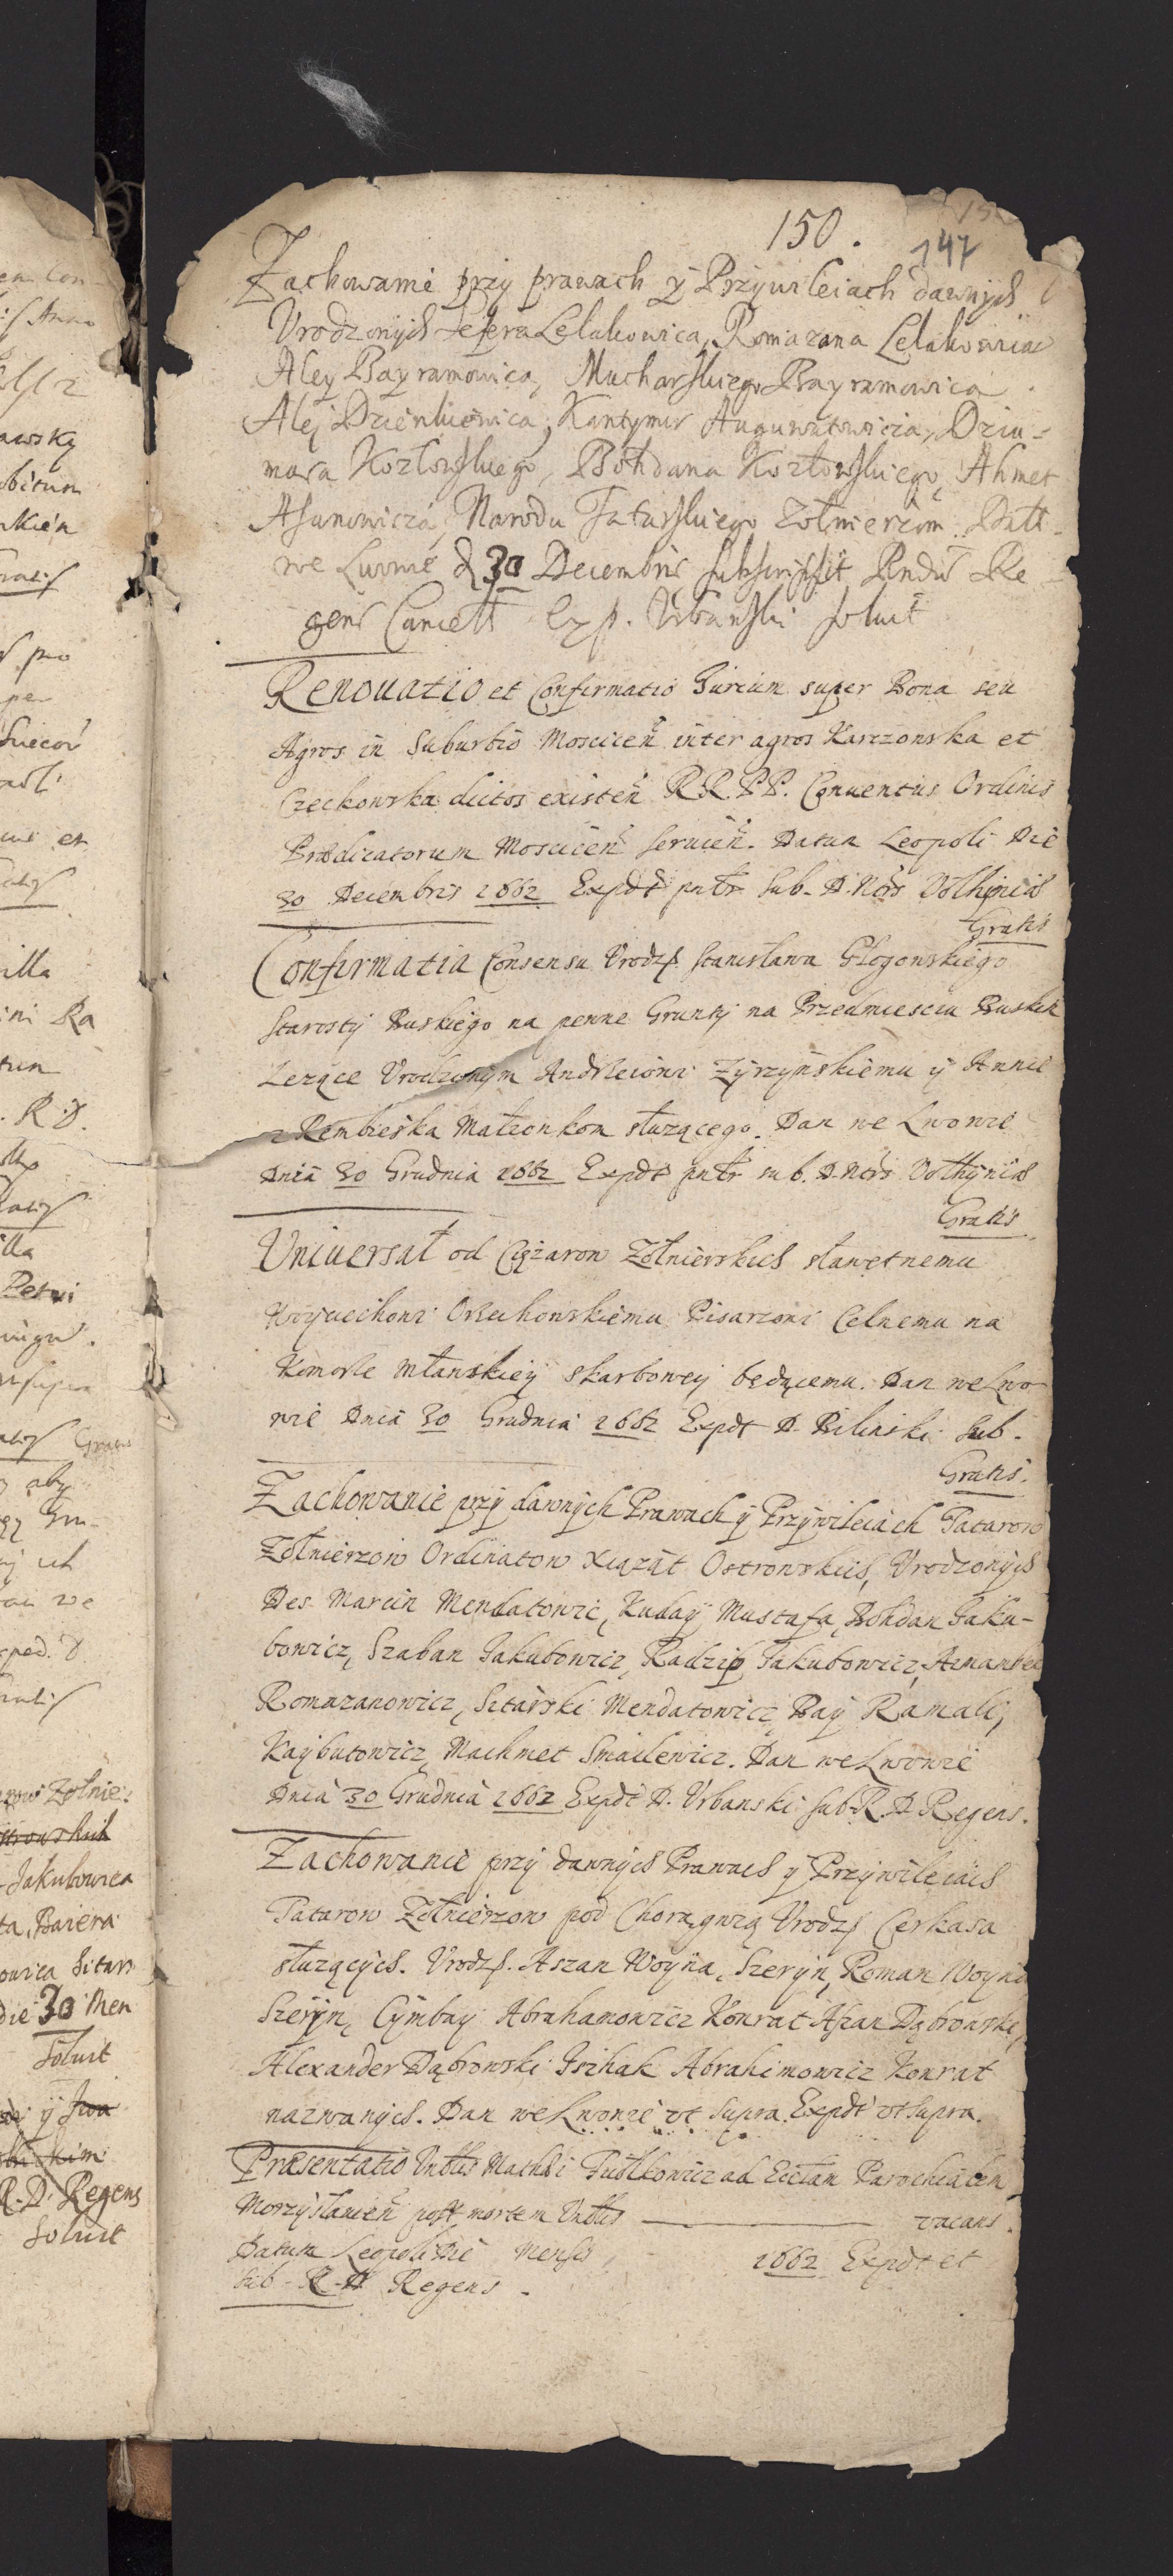 150.
147
Zachowanie przy prawach y Przywileiach dawnych
Vrodzonych Lelakowica, Romazana Lelakowica
Aley Bayramowica, Mucharskiego Bayramowica
Alej Dzienkiewica, Kantymir Dziu-
mara Kozłowskiego, Bohdana Kozłowskiego, Ahmet
Asanowicza, Narodu Tatarskiego Zołnierzom. Datt
we Lwowie d 30 Decembris subscripsit Rndus Re
gens Cancell Exp. Vrbanski soluit
Renouatio et Confirmatio Iurium super Bona seu
Agros in Suburbio Moscicen inter agros Karczowska et
Czeckowska dictos existen R.R. P.P. Conuentus Ordinis
Prædicatorum Moscicen seruien. Datum Leopoli Die
30 Decembris 1662 Expdt Sub. D. Nots Volhyniæ
Gratis
Confirmatia Consensu Vrodz. Stanisława Głogowskiego
Starosty Buskiego na pewne Grunty na Przedmiesciu Buskim
Lezące Vrodzonym Andrzeiowi Zyrzynskiemu y Annie
z Rembieska Małzonkom słuzącego. Dan we Lwowie
Dnia 30 Grudnia 1662 Expdt sub. D. Nots Volhyniæ
Gratis
Vniuersał od Ciężarow Zołnierskich sławetnemu
Woyciechowi Orzechowskiemu Pisarzowi Celnemu na
Komorze Mławskiey skarbowey będącemu. Dan we Lwo
wie Dnia 30 Grudnia 1662 Expdt D. Bilinski Sub.
Gratis.
Zachowanie przy dawnych Prawach y Przywileiach Tatarow
Zołnierzow Ordinatow Xiążąt Ostrowskich, Vrodzonych
Des Marcin Mendatowic, Kuday Mustafa, Bohdan Jaku-
bowicz, Szaban Jakubowicz, Radzip Jakubowicz,
Romazanowicz, Sitarski Mendatowicz, Bay Ramali,
Kaybutowicz, Machmet Smailewicz. Dan we Lwowie
Dnia 30 Grudnia 1662 Expdt D. Vrbanski sub R. D Regens.
Zachowanie przy dawnych Prawach y Przywileiach
Tatarow Zołnierzow pod Chorągwią Vrodz Cerkasa
słuzących. Vrodz. Aszan Woyna, Szeryn, Roman Woyna
Szeryn, Cymbay Abrahamowicz Konrat Aszan Dąbrowski,
Alexander Dąbrowski Isihak Abrahimowicz Konrat
nazwanych. Dan we Lwowie vt supra. Expdt vt supra.
Præsentatio Vnblis Mathæi ad Ecclam Parochialem
post mortem Vnblis vacans.
Datum Leopoli Die Mensis 1662 Expdt et
Sub R. D Regens.
awsky
Gratis
illa
ini Ra
. R D.
Petri
y aby
Zołnie:
Jakubowica
Baiera
die 30 Men
Soluit
R. D. Regens
Soluit